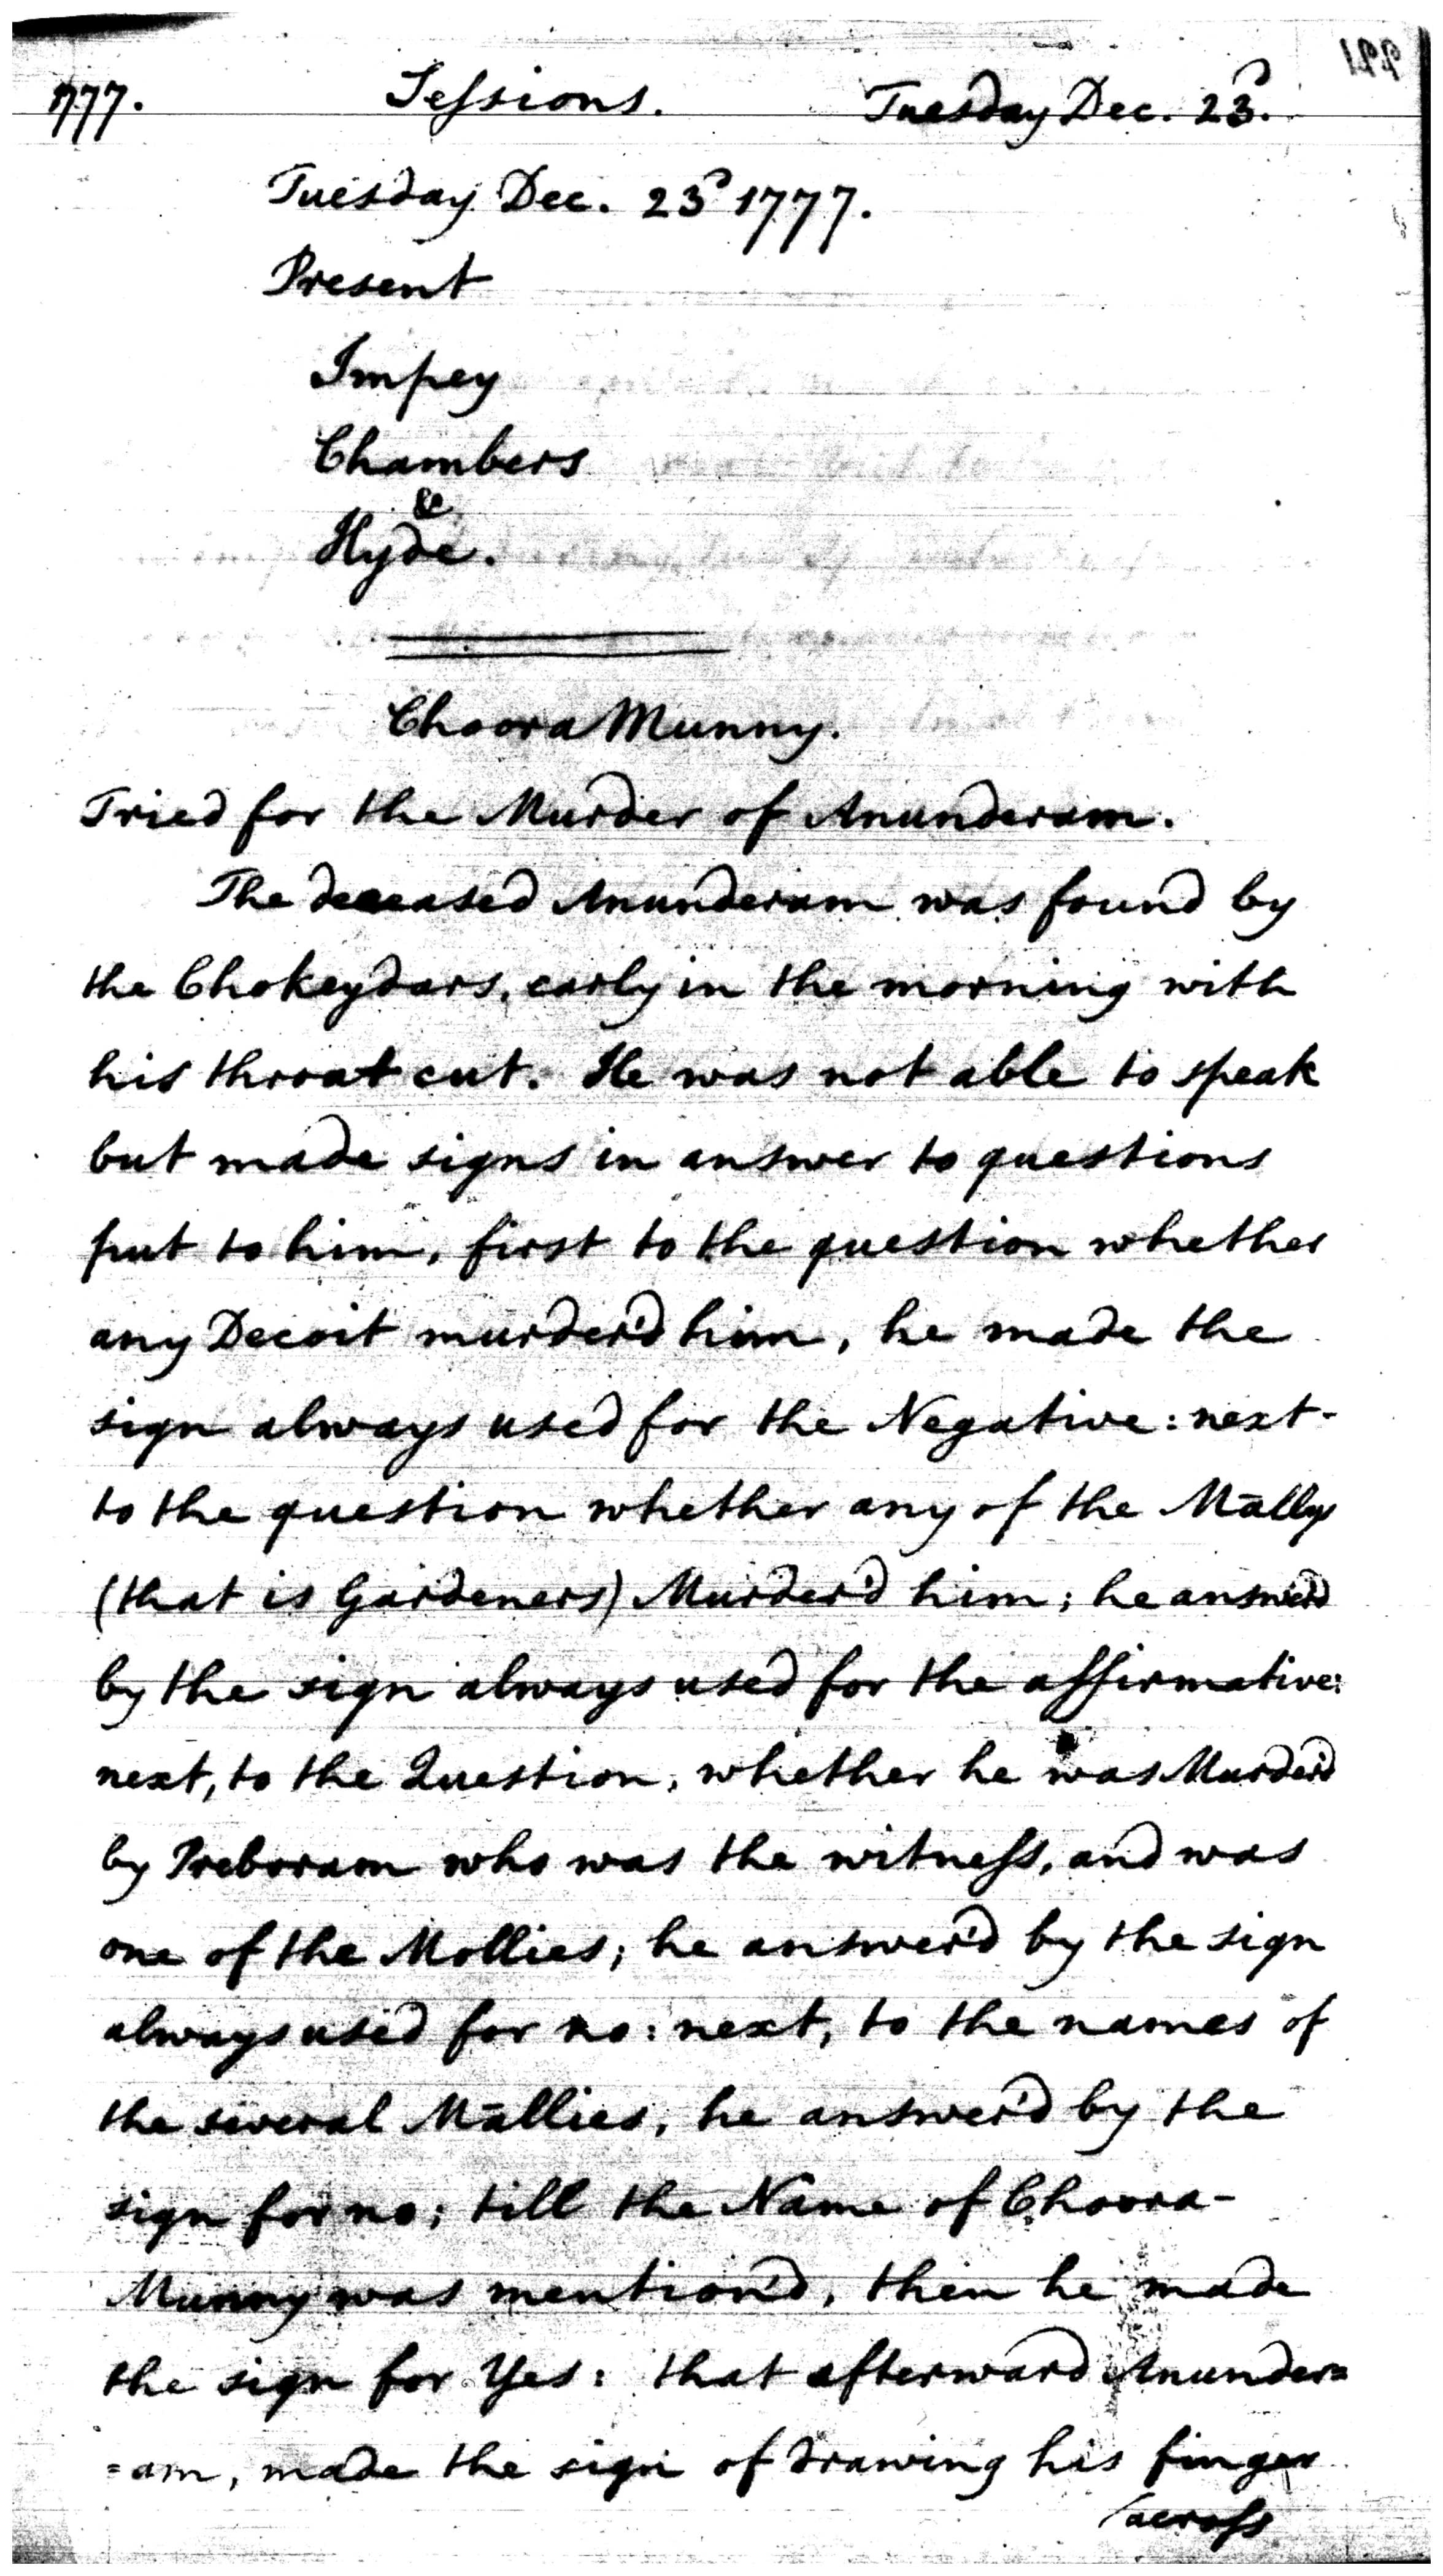 1777. Sessions. Tuesday Dec. 23d.
Tuesday Dec. 23d 1777.
Present
Impey
Chambers
&
Hyde.
Choora Munny.
Tried for the Murder of Anunderam.
The deceased Anunderam was found by
the Chokeydars, early in the morning with
his throat cut. He was not able to speak
but made signs in answer to questions
put to him, first to the question whether
any Decoit murder'd him, he made the
sign always used for the Negative: next-
to the question whether any of the Māllys
(that is Gardeners) Murder'd him; he answer'd
by the sign always used for the affirmative:
next, to the Question, whether he was Murder'd
by Preboram who was the witness, and was
one of the Mollies; he answer'd by the sign
always used for no: next, to the names of
the several Māllies, he answer'd by the
sign for no; till the Name of Choora-
Munny was mention'd, then he made
the sign for Yes: that afterward Anunder=
=am, made the sign of drawing his finger
(across